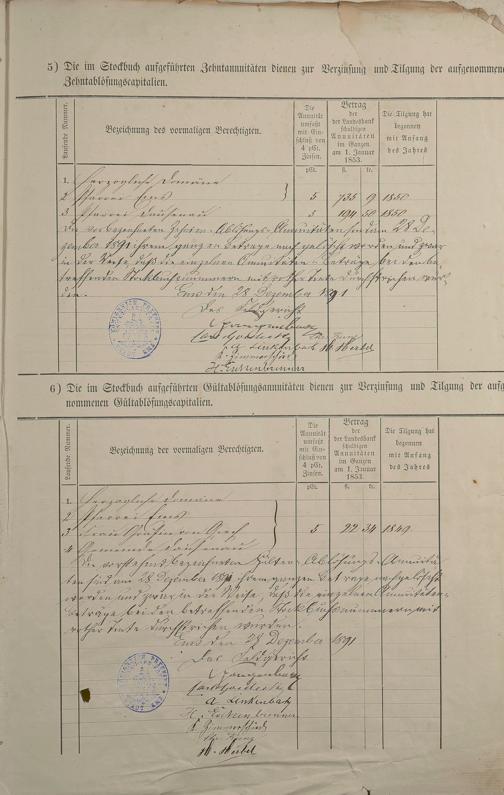 5) Die im Stockbuch aufgeführten Zehntannuitäten dienen zur Verzinsung und Tilgung der aufgenommene
Zehntablösungscapitalien.
Laufende Nummer.
Bezeichnung des vormaligen Berechtigten.
Die Annuität umfaßt mit Einschluß von 4 pCt. Zinsen.
Betrag der der Landesbank schuldigen Annuitäten im Ganzen am 1. Januar 1853.
Die Tilgung hat begonnen mit Anfang des Jahres
pCt. fl. kr.
1. Herzogliche Domäne
2 Pfarrei Ems 5 735 9 1850
3 Pfarrei Dausenau 5 194 50 1850
Die vorbezeichneten Zehnten-Ablösungs-Annuitäten sind am 28 De-
zember 1891 ihrem ganzen Betrage nach gelöscht worden und zwar
in der Weise, daß die einzelnen Annuitäten-Beträge bei den be-
treffenden Stockbuchsnummern mit rother Tinte durchstrichen wur-
den.
Ems den 28 Dezember 1891
Das Feldgericht
Linkenbach
H. Heibel
6) Die im Stockbuch aufgeführten Gültablösungsannuitäten dienen zur Verzinsung und Tilgung der aufg
nommenen Gültablösungscapitalien.
Laufende Nummer.
Bezeichnung der vormaligen Berechtigten.
Die Annuität umfaßt mit Einschluß von 4 pCt. Zinsen.
Betrag der der Landesbank schuldigen Annuitäten im Ganzen am 1. Januar 1853.
Die Tilgung hat begonnen mit Anfang des Jahres
pCt. fl. kr.
1. Herzogliche Domäne
2 Pfarrei Ems
3 Frau Gräfin von Giech 5 22 34 1849
4 Gemeinde Dausenau
Die vorstehend bezeichneten Gülten-Ablösungs-Annuitä-
ten sind am 28 Dezember 1891 ihrem ganzen Betrage nach gelöscht
worden und zwar in der Weise, daß die einzelnen Annuitäten-
beträge bei den betreffenden Stockbuchsnummern mit
rother Tinte durchstrichen wurden.
Ems den 28 Dezember 1891
Das Feldgericht
A Linkenbach